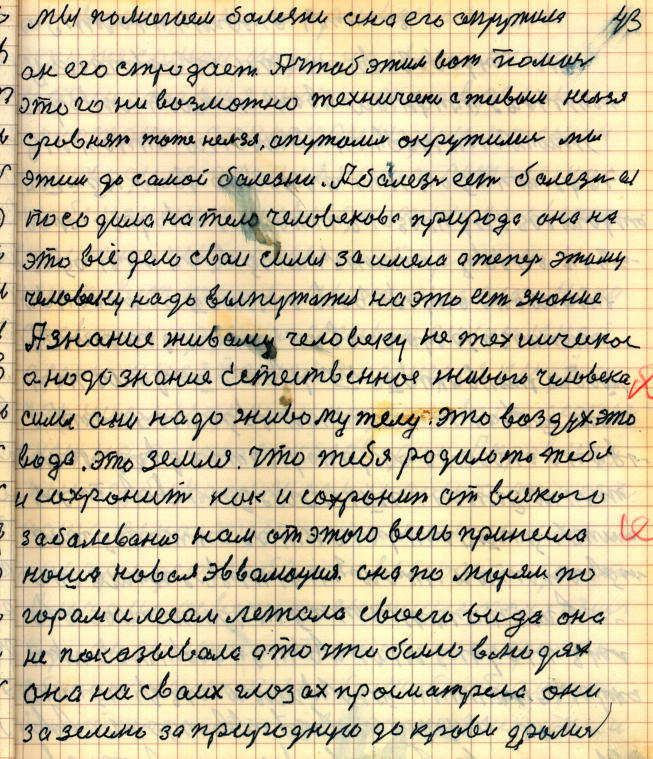 43
мы помогаем балезни она его окружила
он его стродает. А чтоб этим вот помоч
этого ни возможно технически с живым нельзя
сровнят тоже нельзя, опутали окружили мы
этим до самой балезни. А балезн ест балезн ей
посодила на тело человекова природа она на
это всё дело свои силы заимела а тепер этому
человеку надо выпутатся на это ест знание
А знание живому человеку не техническое
а нодо знание Естественное живого человека,
силы они надо живому телу. это воздух это
вода. это земля. что тебя родило то тебя
и сохронит как и сохронит от всякого
забалевания нам от этого всего принесла
ноша новая Эвамоция. она по морям по
горам и лесам летала своего вида она
не показывала а то что было в людях
она на своих глозах просматрела они
за землю за природную до крови дролис